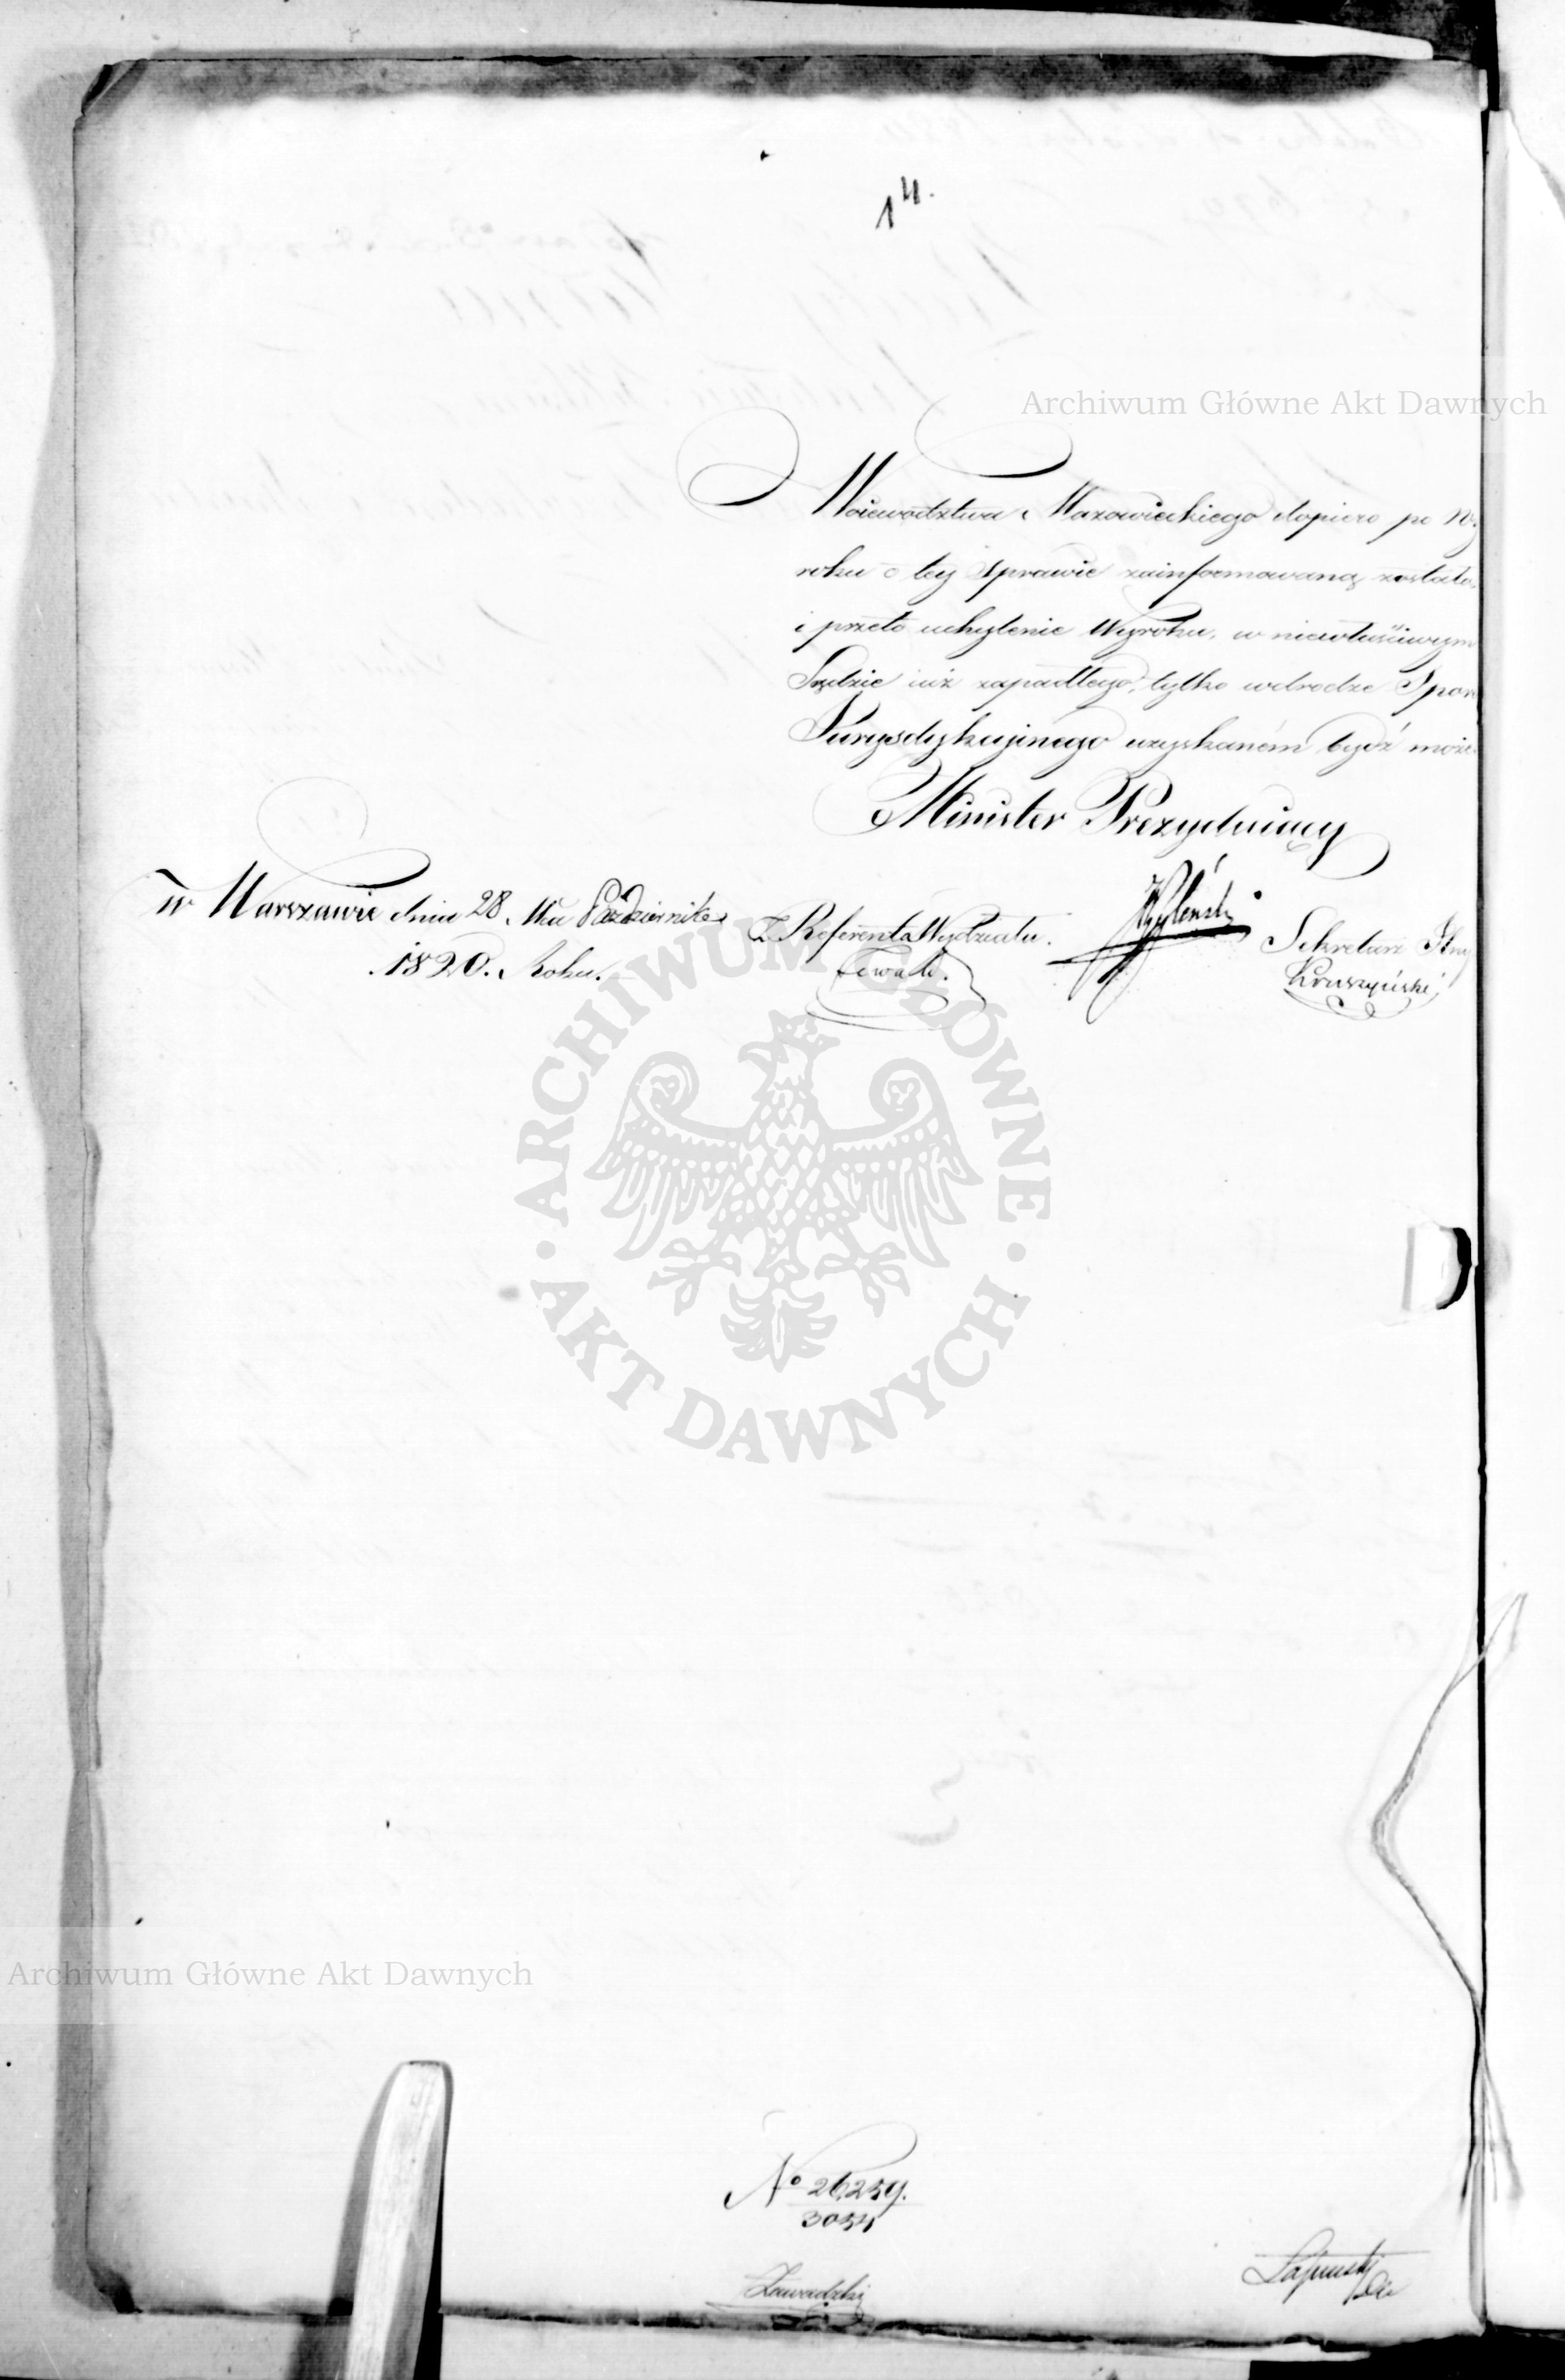 14.
Archiwum Główne Akt Dawnych
Woiewodztwa Mazowieckiego dopiero po Wy
roku o tey Sprawie zainformowaną została,
i przeto uchylenie Wyroku, w niewłaściwym
Sądzie iuż zapadłego, tylko wdrodze Sporu
Jurysdykcyinego uzyskaném bydź może
Minister Prezyduiący
w Warszawie dnia 28 Mca Października
1820. Roku.
Z. Referenta Wydziału.
Sekretarz
Kruszyński
ARCHIWUM GŁÓWNE · AKT DAWNYCH ·
Archiwum Główne Akt Dawnych
No 26,259.
3054
Zawadzki